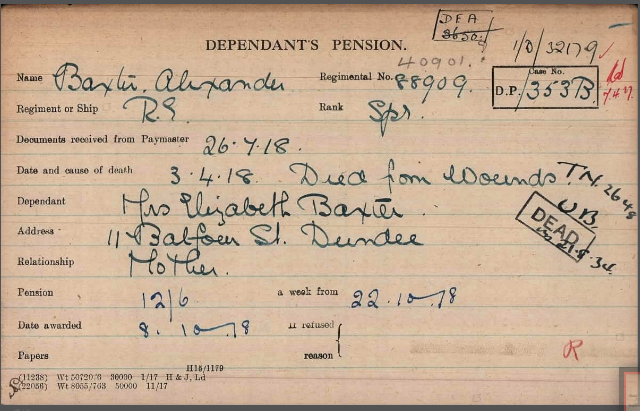 DEA
DEPENDANT'S PENSION.
1/D/32179
40901.
Name Baxter. Alexander Regimental No. 88909.
Case No.
D.P./353B.
Regiment or Ship R.E. Rank Spr.
Documents received from Paymaster 26.7.18.
Date and cause of death 3.4.18. Died from Wounds.
T.N. 2648
Dependant Mrs Elizabeth Baxter.
W.B.
DEAD
Address 11 Balfour St. Dundee
Relationship Mother.
Pension 12/6 a week from 22.10.18
Date awarded 8.10.18 If refused
Papers reason
R
H15/1179
(11238) Wt 50720/6 30000 1/17 H & J, Ld
(22056) Wt 8055/763 50000 11/17